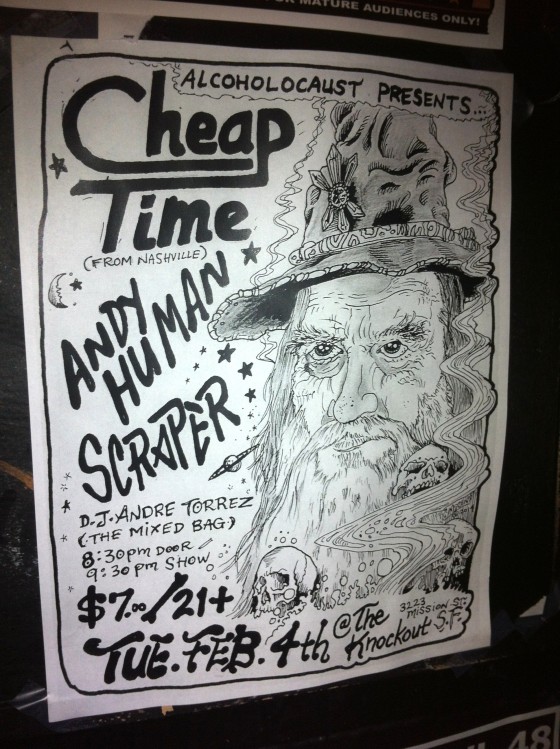 R MATURE AUDIENCES ONLY!
ALCOHOLOCAUST PRESENTS...
Cheap
Time
(FROM NASHVILLE)
ANDY
HUMAN
SCRAPER
D.J. ANDRE TORREZ
(THE MIXED BAG)
8:30pm DOOR
9:30pm SHOW
$7.00/21+
TUE. FEB. 4th
@ The
Knockout
3223
MISSION ST.
S.F.
48